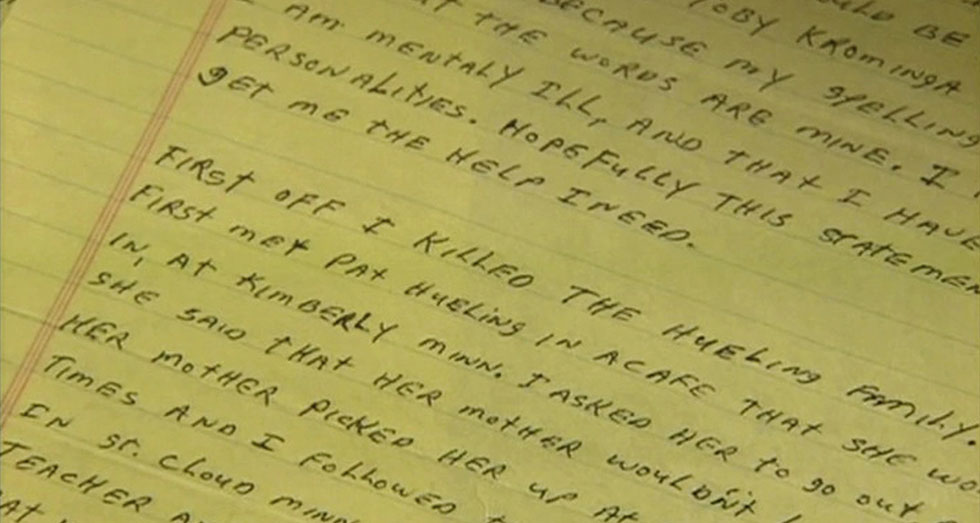 ULD BE
OBY KROMINGA
BECAUSE MY SPELLING
THE WORDS ARE MINE. I
AM MENTALY ILL, AND THAT I HAVE
PERSONALITIES. HOPEFULLY THIS STATEMEN
GET ME THE HELP I NEED.
FIRST OFF I KILLED THE HUELING FAMILY.
FIRST MET PAT HUELING IN A CAFE THAT SHE WO
IN, AT KIMBERLY MINN. I ASKED HER TO GO OUT
SHE SAID THAT HER MOTHER WOULDN'T
HER MOTHER PICKED HER UP AT
TIMES AND I FOLLOWED
IN ST. CLOUD MINN
TEACHER A
AT